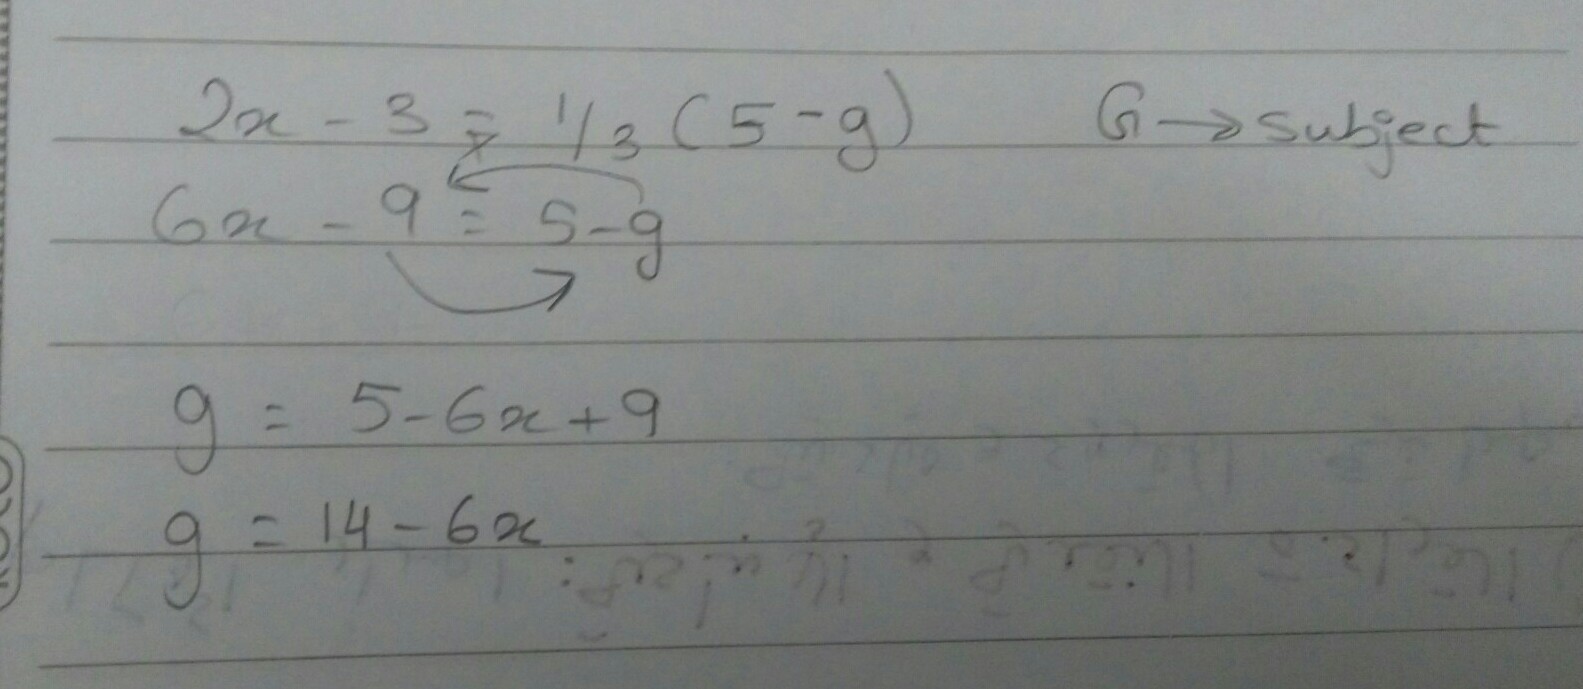 2x - 3 = 1/3 (5 - g) G → subject
6x - 9 = 5 - g
g = 5 - 6x + 9
g = 14 - 6x